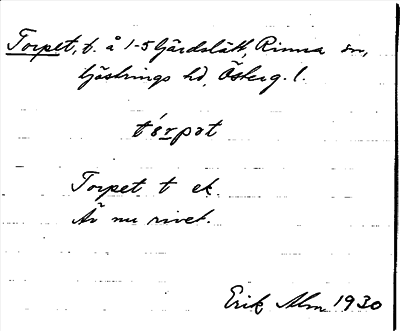 Torpet, t. å 1-5 Gärdslätt, Rinna sn,
Göstrings hd, Österg. l.
tɷ́rpət
Torpet t ek.
Är nu rivet.
Erik Alm 1930